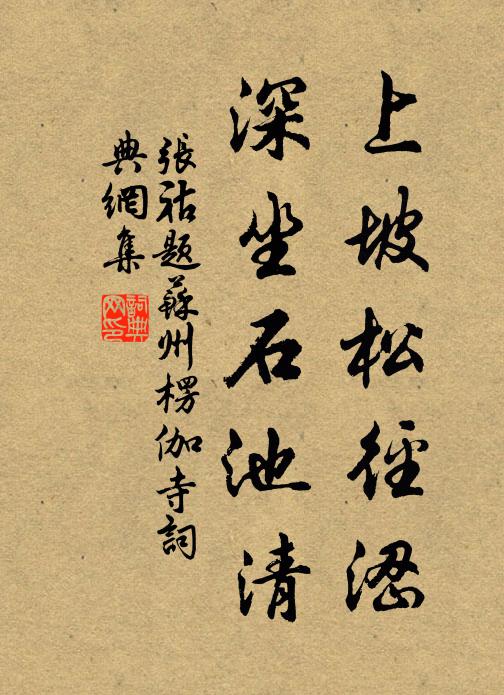 上坡松徑澀
深坐石池清
張祜題蘇州楞伽寺詞
典網集
詞典
网印